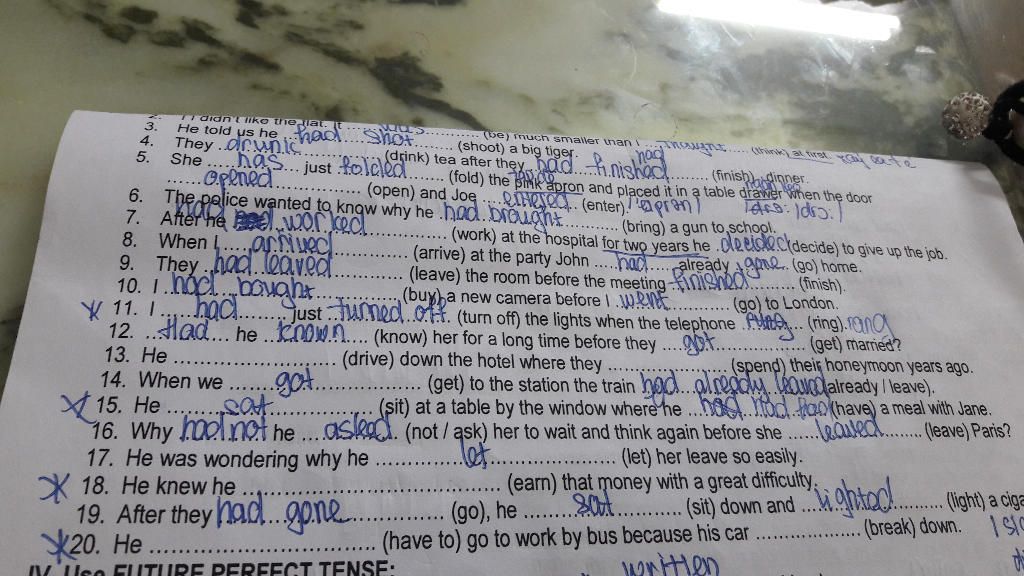 2. I didn't like the flat. It was (be) much smaller than I thought (think) at first
3. He told us he had shot (shoot) a big tiger
4. They drunk (drink) tea after they had finished (finish) dinner.
5. She has just folded (fold) the pink apron and placed it in a table drawer when the door
opened (open) and Joe entered (enter).
6. The police wanted to know why he had brought (bring) a gun to school.
7. After he had worked (work) at the hospital for two years he decided (decide) to give up the job.
8. When I arrived (arrive) at the party John had already gone (go) home.
9. They had leaved (leave) the room before the meeting finished (finish).
10. I had bought (buy) a new camera before I went (go) to London.
11. I had just turned off (turn off) the lights when the telephone (ring) rang
12. Had he known (know) her for a long time before they got (get) married?
13. He (drive) down the hotel where they (spend) their honeymoon years ago.
14. When we got (get) to the station the train had already leaved (already / leave).
15. He sat (sit) at a table by the window where he had had (have) a meal with Jane.
16. Why had not he asked (not / ask) her to wait and think again before she leaved (leave) Paris?
17. He was wondering why he let (let) her leave so easily.
18. He knew he (earn) that money with a great difficulty.
19. After they had gone (go), he sat (sit) down and lighted (light) a ciga
20. He (have to) go to work by bus because his car (break) down.
IV. Use FUTURE PERFECT TENSE:
written